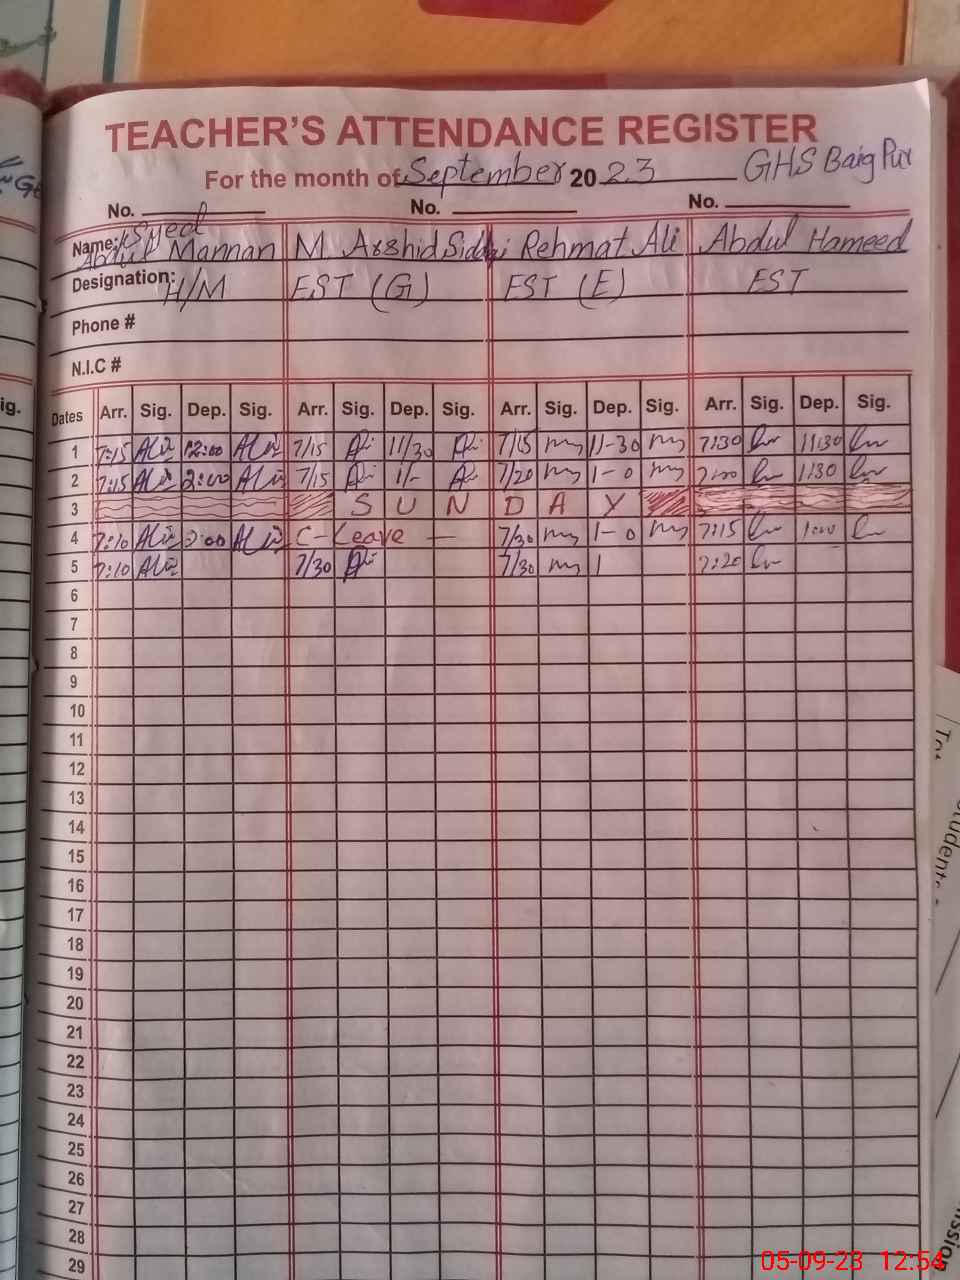 TEACHER'S ATTENDANCE REGISTER
For the month of September 20 23 GHS Baig Pur
No. No. No.
Name: Syed Abdul Mannan M. Arshid Siddiqi Rehmat Ali Abdul Hameed
Designation: H/M EST (G) EST (E) EST
Phone #
N.I.C #
Dates Arr. Sig. Dep. Sig. Arr. Sig. Dep. Sig. Arr. Sig. Dep. Sig. Arr. Sig. Dep. Sig.
1 7:15 12:00 7/15 11/30 7/15 11-30 7:30 11:30
2 7:15 2:00 7/15 1/- 7/20 1-0 1130
3 SUNDAY
4 7:10 C-Leave — 7/30 1-0 7:15 1:00
5 7:10 7/30 7/30 1 7:20
6
7
8
9
10
11
12
13
14
15
16
17
18
19
20
21
22
23
24
25
26
27
28
29
ig.
Students
ission
05-09-23 12:54